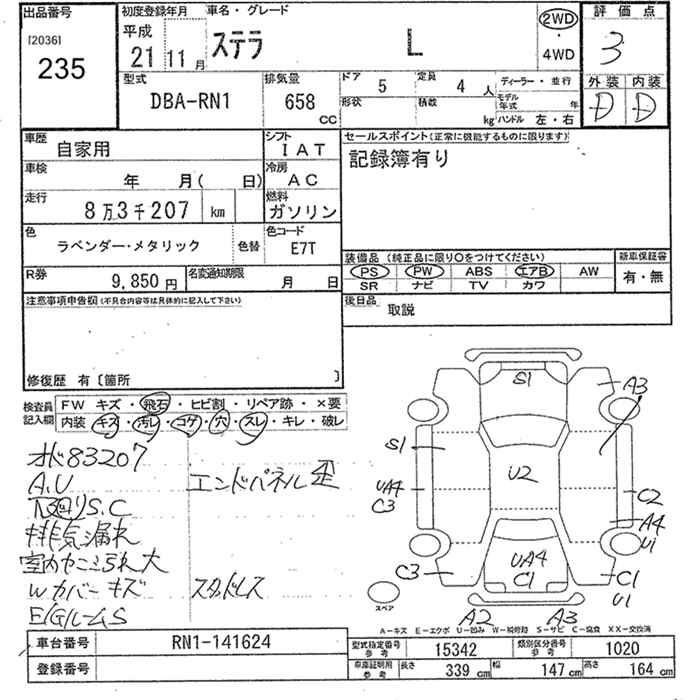 出品番号
[2036]
235
初度登録年月
平成
21 11 月
車名・グレード
ステラ L
2WD
・
4WD
評価点
3
型式
DBA-RN1
排気量
658 CC
ドア 5
定員 4 人
形状
積数 kg
ディーラー・並行
モデル年式 年
ハンドル 左・右
外装 内装
D D
車歴
自家用
シフト
IAT
車検
年 月( 日)
冷房
AC
走行
8万3千207 km
燃料
ガソリン
色
ラベンダー・メタリック
色替
色コード
E7T
R券
9,850円
名変通知期限
月 日
セールスポイント(正常に機能するものに限ります)
記録簿有り
装備品(純正品に限り○をつけてください)
PS PW ABS エアB AW
SR ナビ TV カワ
新車保証書
有・無
後日品
取説
注意事項申告欄(不具合内容等は具体的に記入して下さい)
修復歴 有〔箇所 〕
検査員記入欄
FW キズ・飛石・ヒビ割・リペア跡・×要
内装 キズ・汚レ・コゲ・穴・スレ・キレ・破レ
オド83207
A.U
下回りS.C
排気漏れ
室内ヤニ汚れ大
Wカバーキズ
E/GルームS
エンドパネル歪
スタッドレス
S1
A3
S1
U2
UA4
C3
C2
A4
U1
UA4
C1
C3
C1
U1
A2
A3
スペア
A-キズ E-エクボ U-凹み W-補修跡 S-サビ C-腐食 XX-交換済
車台番号
RN1-141624
登録番号
型式指定番号 参考
15342
類別区分番号 参考
1020
車庫証明用 参考
長さ 339 cm
幅 147 cm
高さ 164 cm